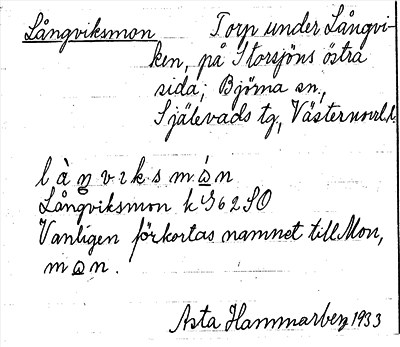 Långviksmon Torp under Långvi-
ken, på Storsjöns östra
sida; Björna sn.,
Själevads tg, Västernorrl.l.
l à ŋ v ı k s m ɷ́ n
Långviksmon k G 62 SO
Vanligen förkortas namnet till Mon,
m ɷ n.
Asta Hammarberg 1933